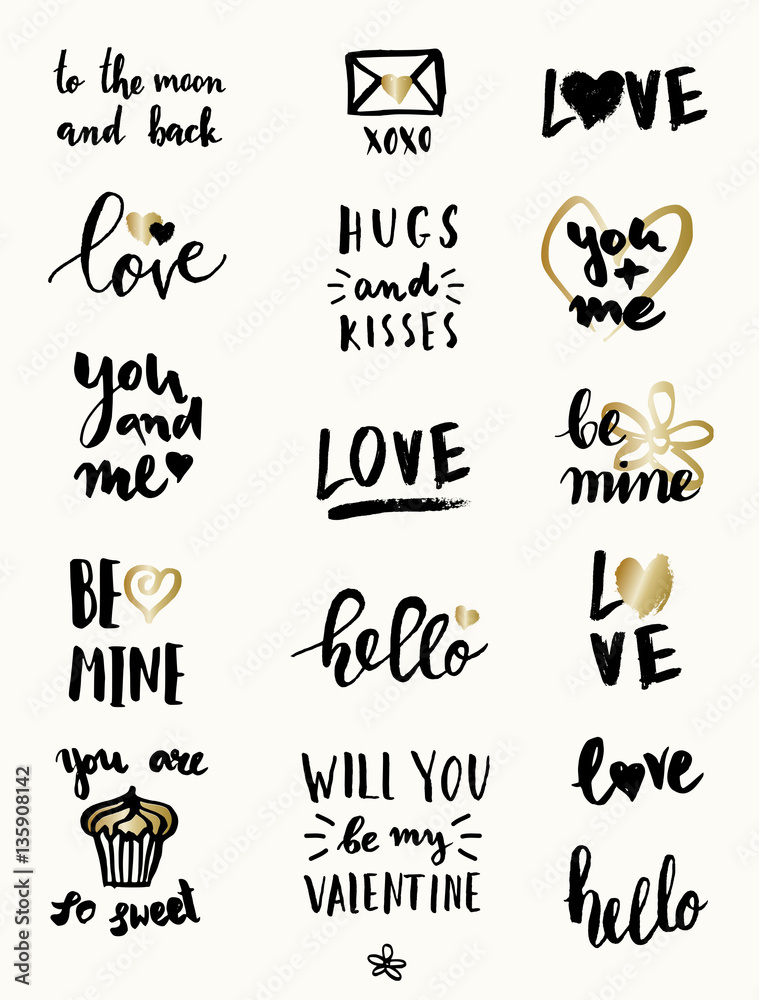 to the moon
and back
XOXO
LOVE
love
HUGS
and
KISSES
you
+
me
you
and
me
LOVE
be
mine
BE
MINE
hello
LO
VE
you are
so sweet
WILL YOU
be my
VALENTINE
love
hello
Adobe Stock | #135908142